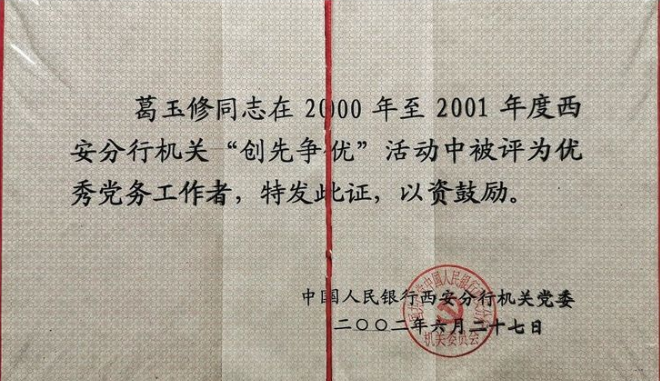 葛玉修同志在 2000 年至 2001 年度西
安分行机关“创先争优”活动中被评为优
秀党务工作者，特发此证，以资鼓励。
中国人民银行西安分行机关党委
二〇〇二年六月二十七日
机关委员会